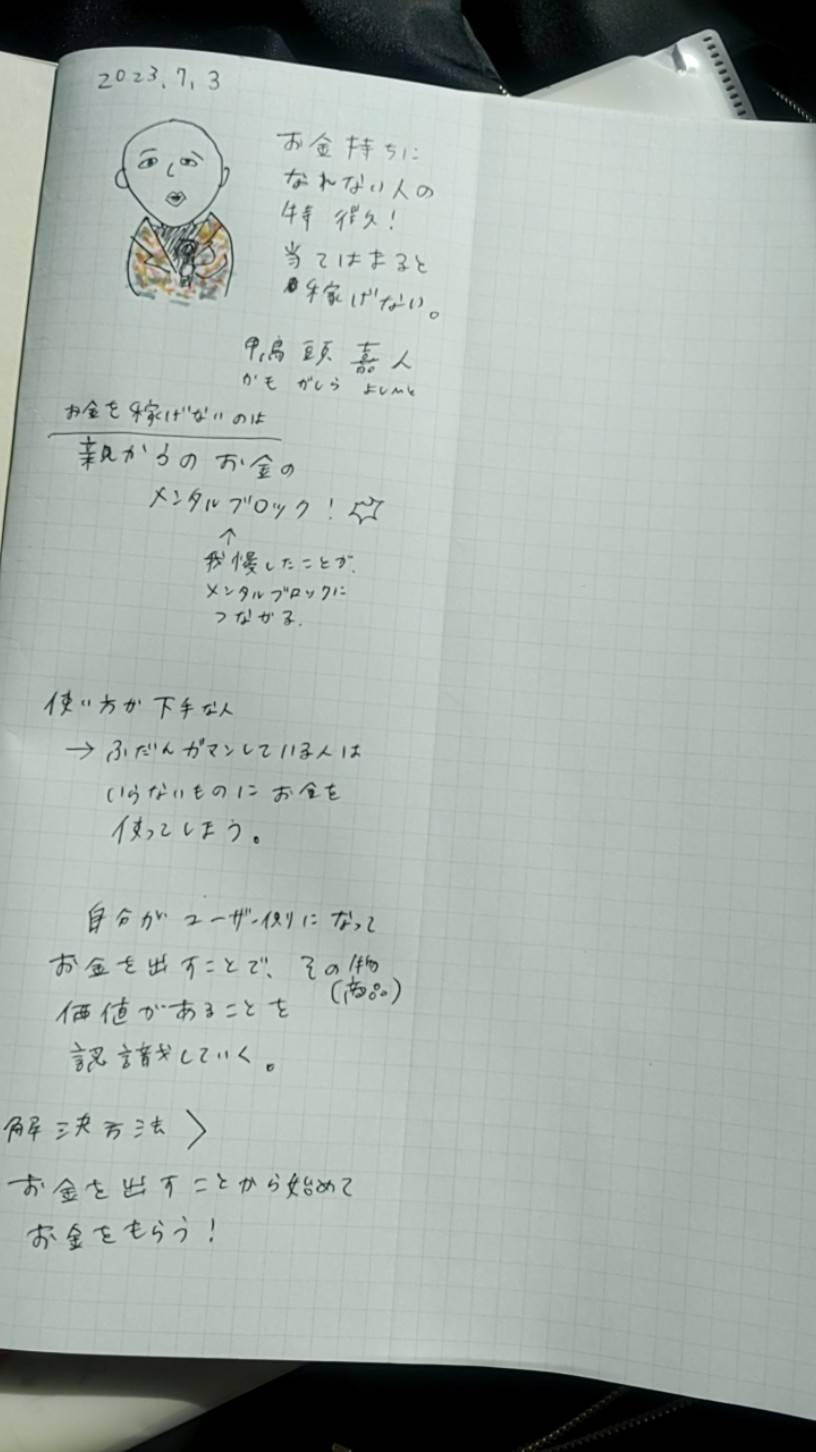 2023.7.3
お金持ちに
なれない人の
特徴!
当てはまると
稼げない。
鴨頭嘉人
かも がしら よしひと
お金を稼げないのは
親からのお金の
メンタルブロック!
↑
我慢したことが、
メンタルブロックに
つながる.
使い方が下手な人
→ ふだんガマンしている人は
いらないものにお金を
使ってしまう。
自分がユーザー側になって
お金を出すことで、その物
(商品)
価値があることを
認識していく。
解決方法〉
お金を出すことから始めて
お金をもらう!